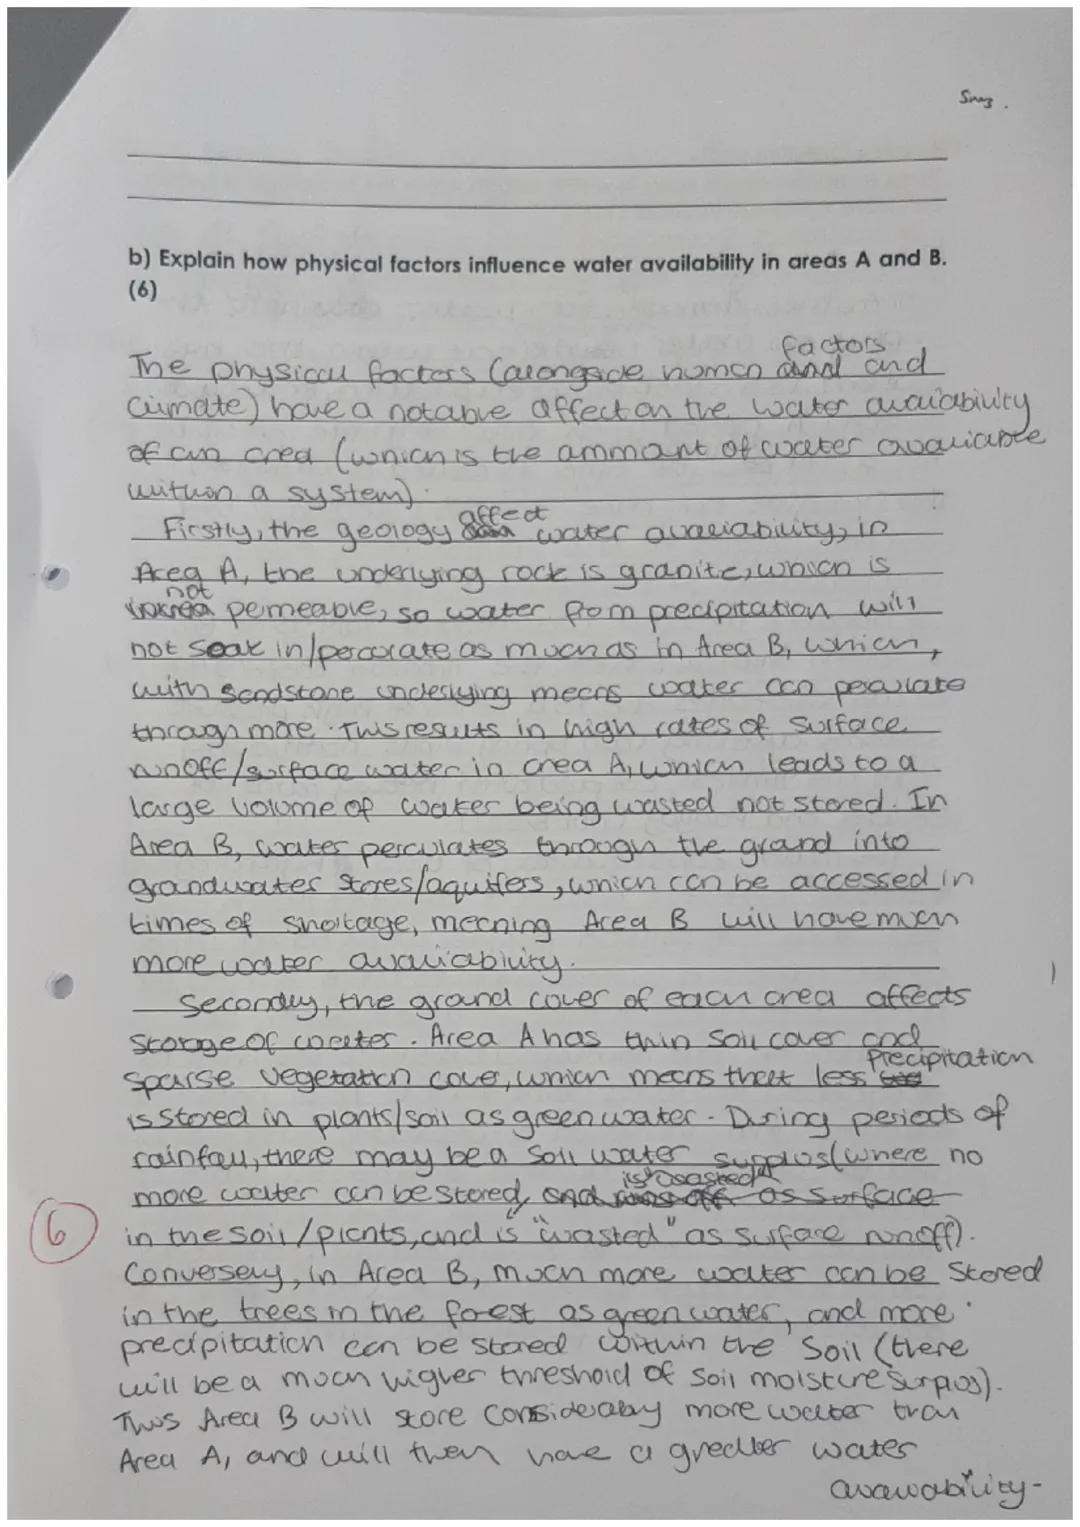 b) Explain how physical factors influence water availability in areas A and B.
(6)
factors
The physical factors (alongside human and and
climate) have a notable affect on the water avaiability
of an area (which is the ammount of water avaliable
within a system).
affect
Firstly, the geology water avaliability, in
Area A, the underlying rock is granite, which is
not
permeable, so water from precipitation will
not soak in/percolate as much as in Area B, which,
with sandstone underlying means water can perculate
through more. This results in high rates of surface
runoff/surface water in area A, which leads to a
large volume of water being wasted not stored. In
Area B, water perculates through the ground into
groundwater stores/aquifers, which can be accessed in
times of shortage, meaning Area B will have much
more water avaliability.
Secondly, the ground cover of each area affects
storage of water. Area A has thin soil cover and
Precipitation
sparse vegetation cover, which means that less
is stored in plants/soil as green water. During periods of
rainfall, there may be a soil water surplus (where no
is "wasted"
more water can be stored, and runs off as surface
6
in the soil/plants, and is "wasted" as surface runoff).
Conversely, in Area B, much more water can be stored
in the trees in the forest as green water, and more
precipitation can be stored within the soil (there
will be a much higher threshold of soil moisture surplus).
Thus Area B will store considerably more water than
Area A, and will then have a greater water
avaliability.